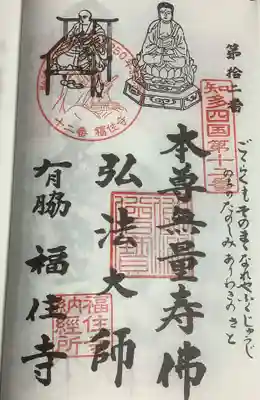 第拾二番
知多四国第十二番
ごくらくも そのまゝなれや ふくじゅうじ
のちの たのしみ ありわきの さと
本尊無量寿佛
弘法大師
有脇 福住寺
十二番 福住寺
福住寺
納経所